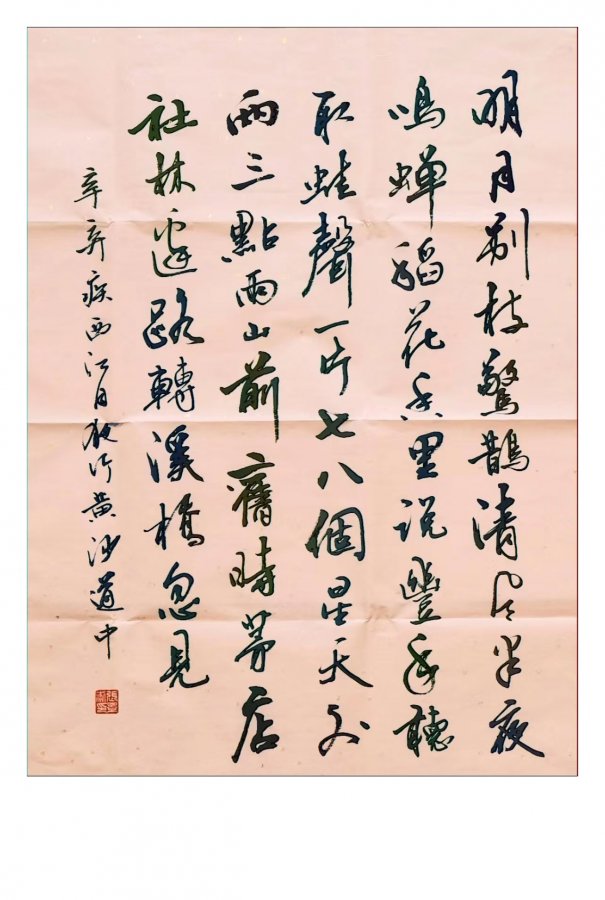 明月别枝驚鵲清風半夜
鳴蝉稻花香里说豐年聽
取蛙聲一片七八個星天外
兩三點雨山前舊時茅店
社林邊路轉溪橋忽見
辛弃疾西江月夜行黄沙道中